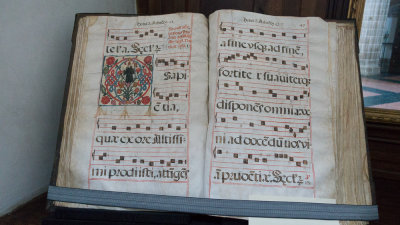 tera. Seclꝛ.
Sapi
ētia,
quæ ex ore Altissi
mi prodijsti, attīges
a fine vsq; ad finē,
fortiter suauiterq;
disponēs omnia: ve
ni ad docēdū nos vi
ā prudētiæ. Seclꝛ.